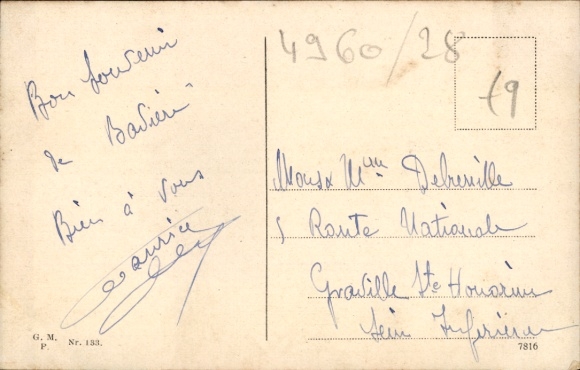 Bon souvenir
de Bavière
Bien à vous
Maurice
4960/28
19
Monsr Mme Debreville
5 Route Nationale
Graville Ste Honorine
Seine Inferieure
G. M.
P. Nr. 133.
7816